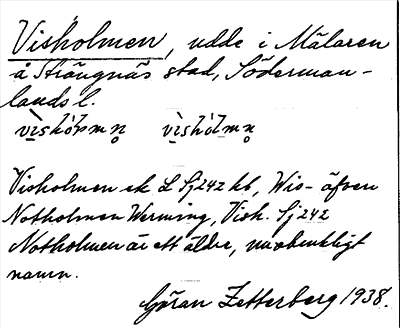 Visholmen, udde i Mälaren
å Strängnäs stad, Söderman-
lands l.
Visholmen ek L Sj242 kb, Wis- äfven
Notholmen Werming, Vish. Sj242
Notholmen är ett äldre, nu obrukligt
namn.
Göran Zetterberg 1938.